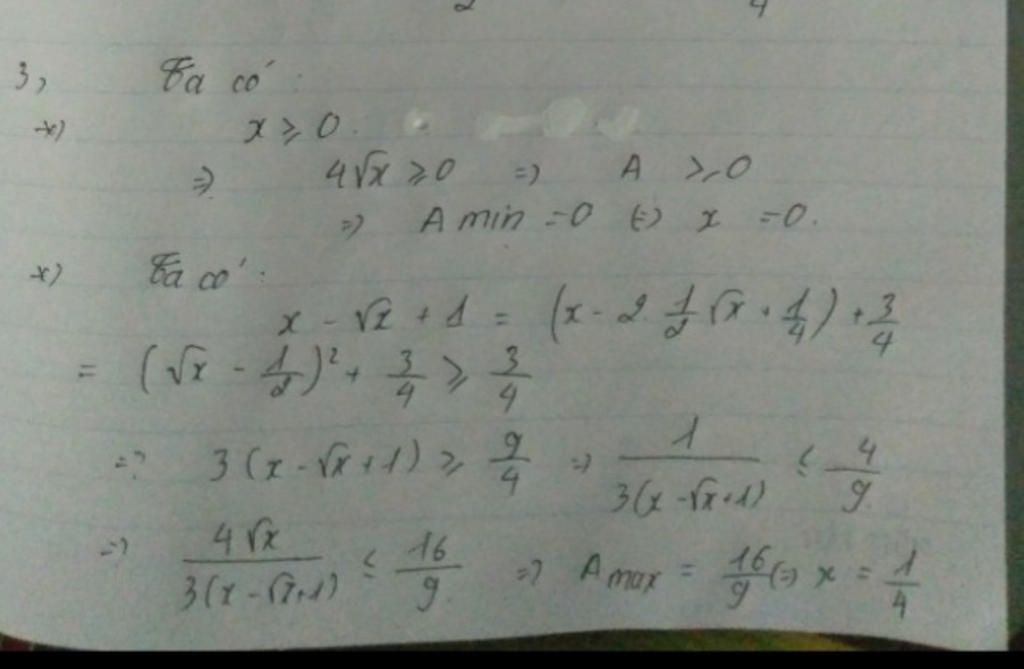 2 4
3, Ta có:
*) x ≥ 0.
=> 4√x ≥ 0 => A ≥ 0
=> A min = 0 (=) x = 0.
*) Ta có:
x - √x + 1 = (x - 2 1/2 √x + 1/4) + 3/4
= (√x - 1/2)² + 3/4 ≥ 3/4
=> 3(x - √x + 1) ≥ 9/4 => 1/3(x - √x + 1) ≤ 4/9
=> 4√x/3(x - √x + 1) ≤ 16/9 => A max = 16/9 (=) x = 1/4